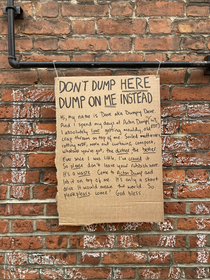 DON'T DUMP HERE
DUMP ON ME INSTEAD
Hi, my name is Dave aka Dumpy Dave
And I spend my days at Acton Dump
I absolutely love getting mouldy, old
crap thrown on top of me. Soiled mattresses,
rotting
whatever you've got, the dirtier the better!
Ever since I was little, I've craved it
So please don't leave your rubbish here
It's a waste. Come to Acton Dump and
put it on top of me. It's only a short
drive
it would mean the world. So
please
come! God bless